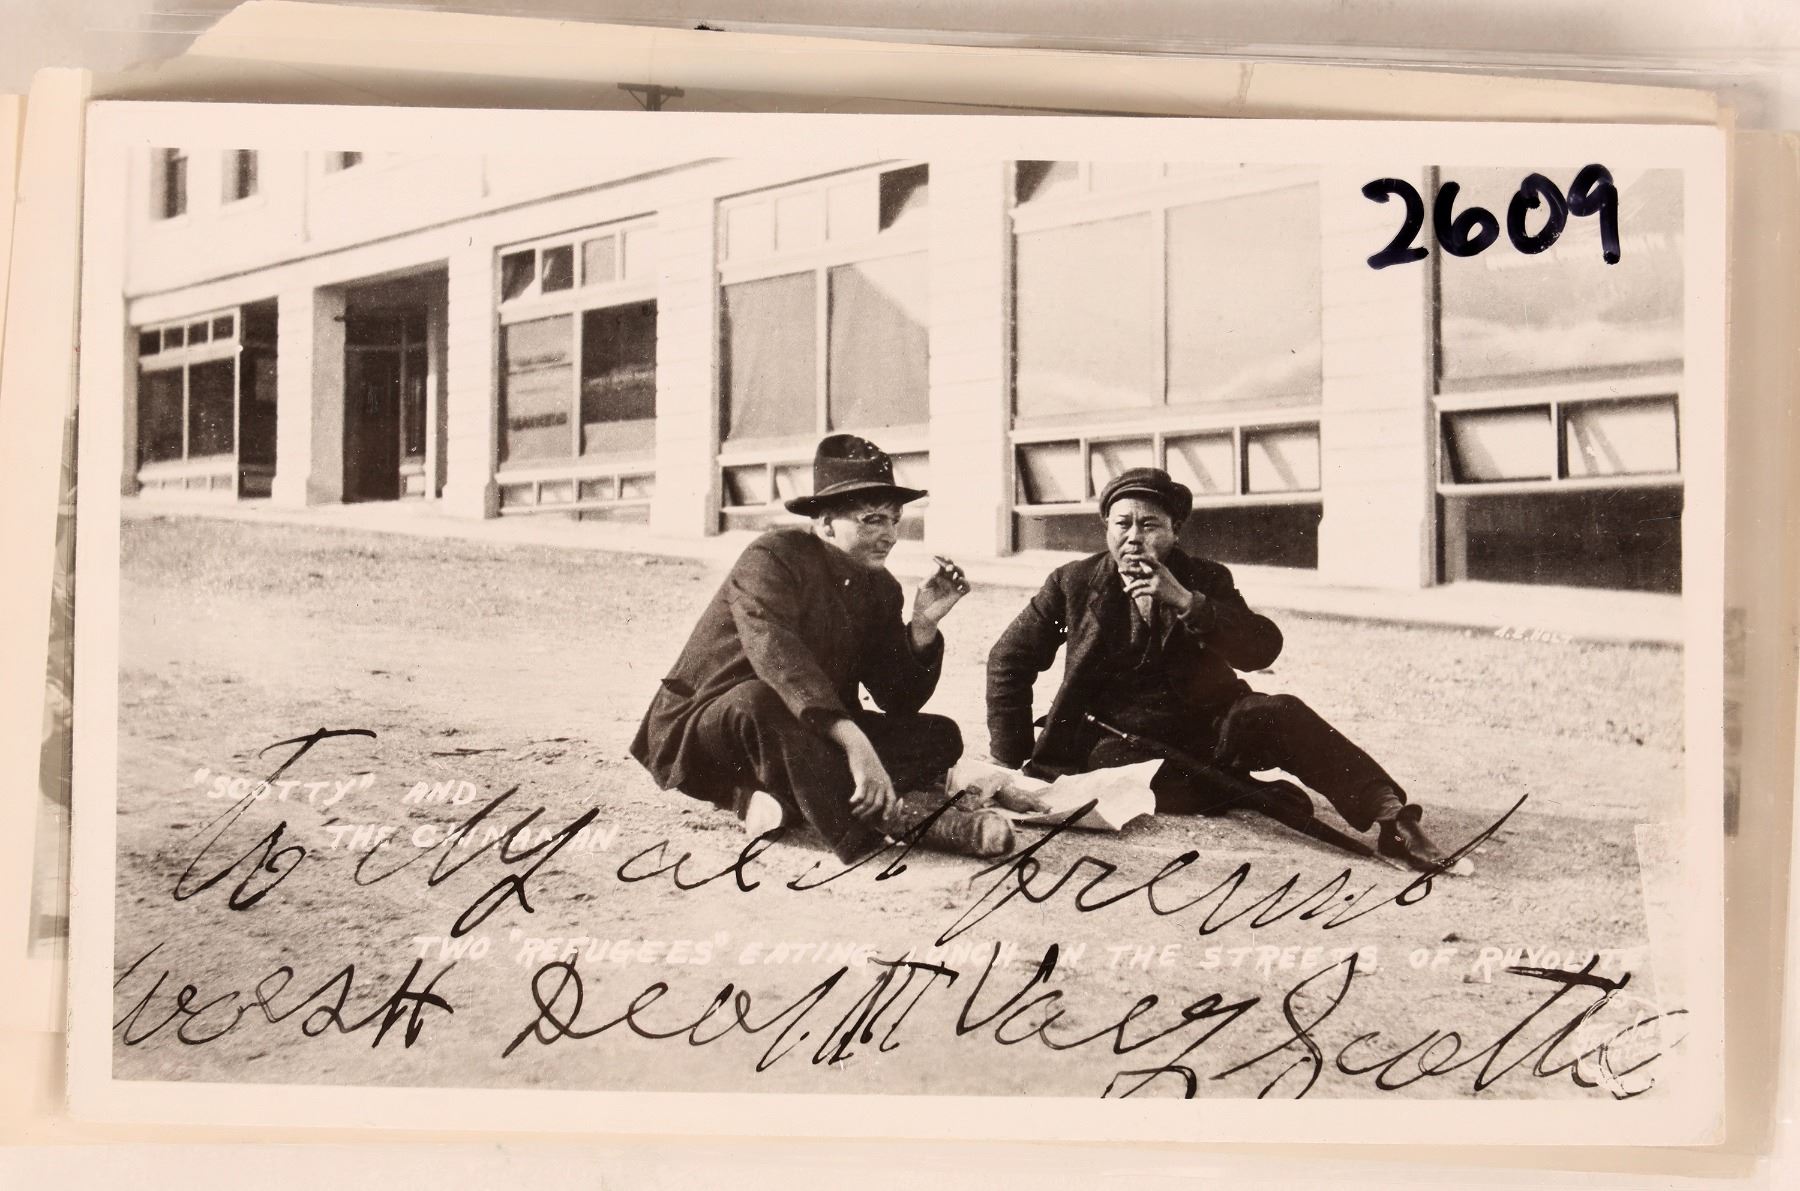 2609
A. E. HOLT
"SCOTTY" AND
THE CHINAMAN
To My old friend
TWO "REFUGEES" EATING LUNCH IN THE STREETS OF RHYOLITE
Death Valley Scotty